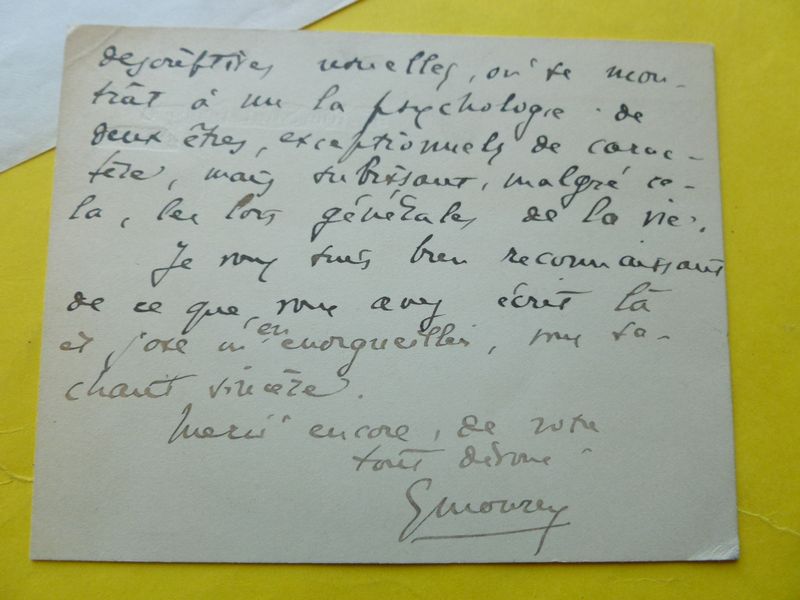 descriptives usuelles, où se mon-
trât à nu la psychologie de
deux êtres, exceptionnels de carac-
tère, mais subissant, malgré ce-
la, les lois générales de la vie.
Je vous suis bien reconnaissant
de ce que vous avez écrit là
et j'ose m'en enorgueillir, vous sa-
chant sincère.
Merci encore, de votre
tout dévoué
GMourey